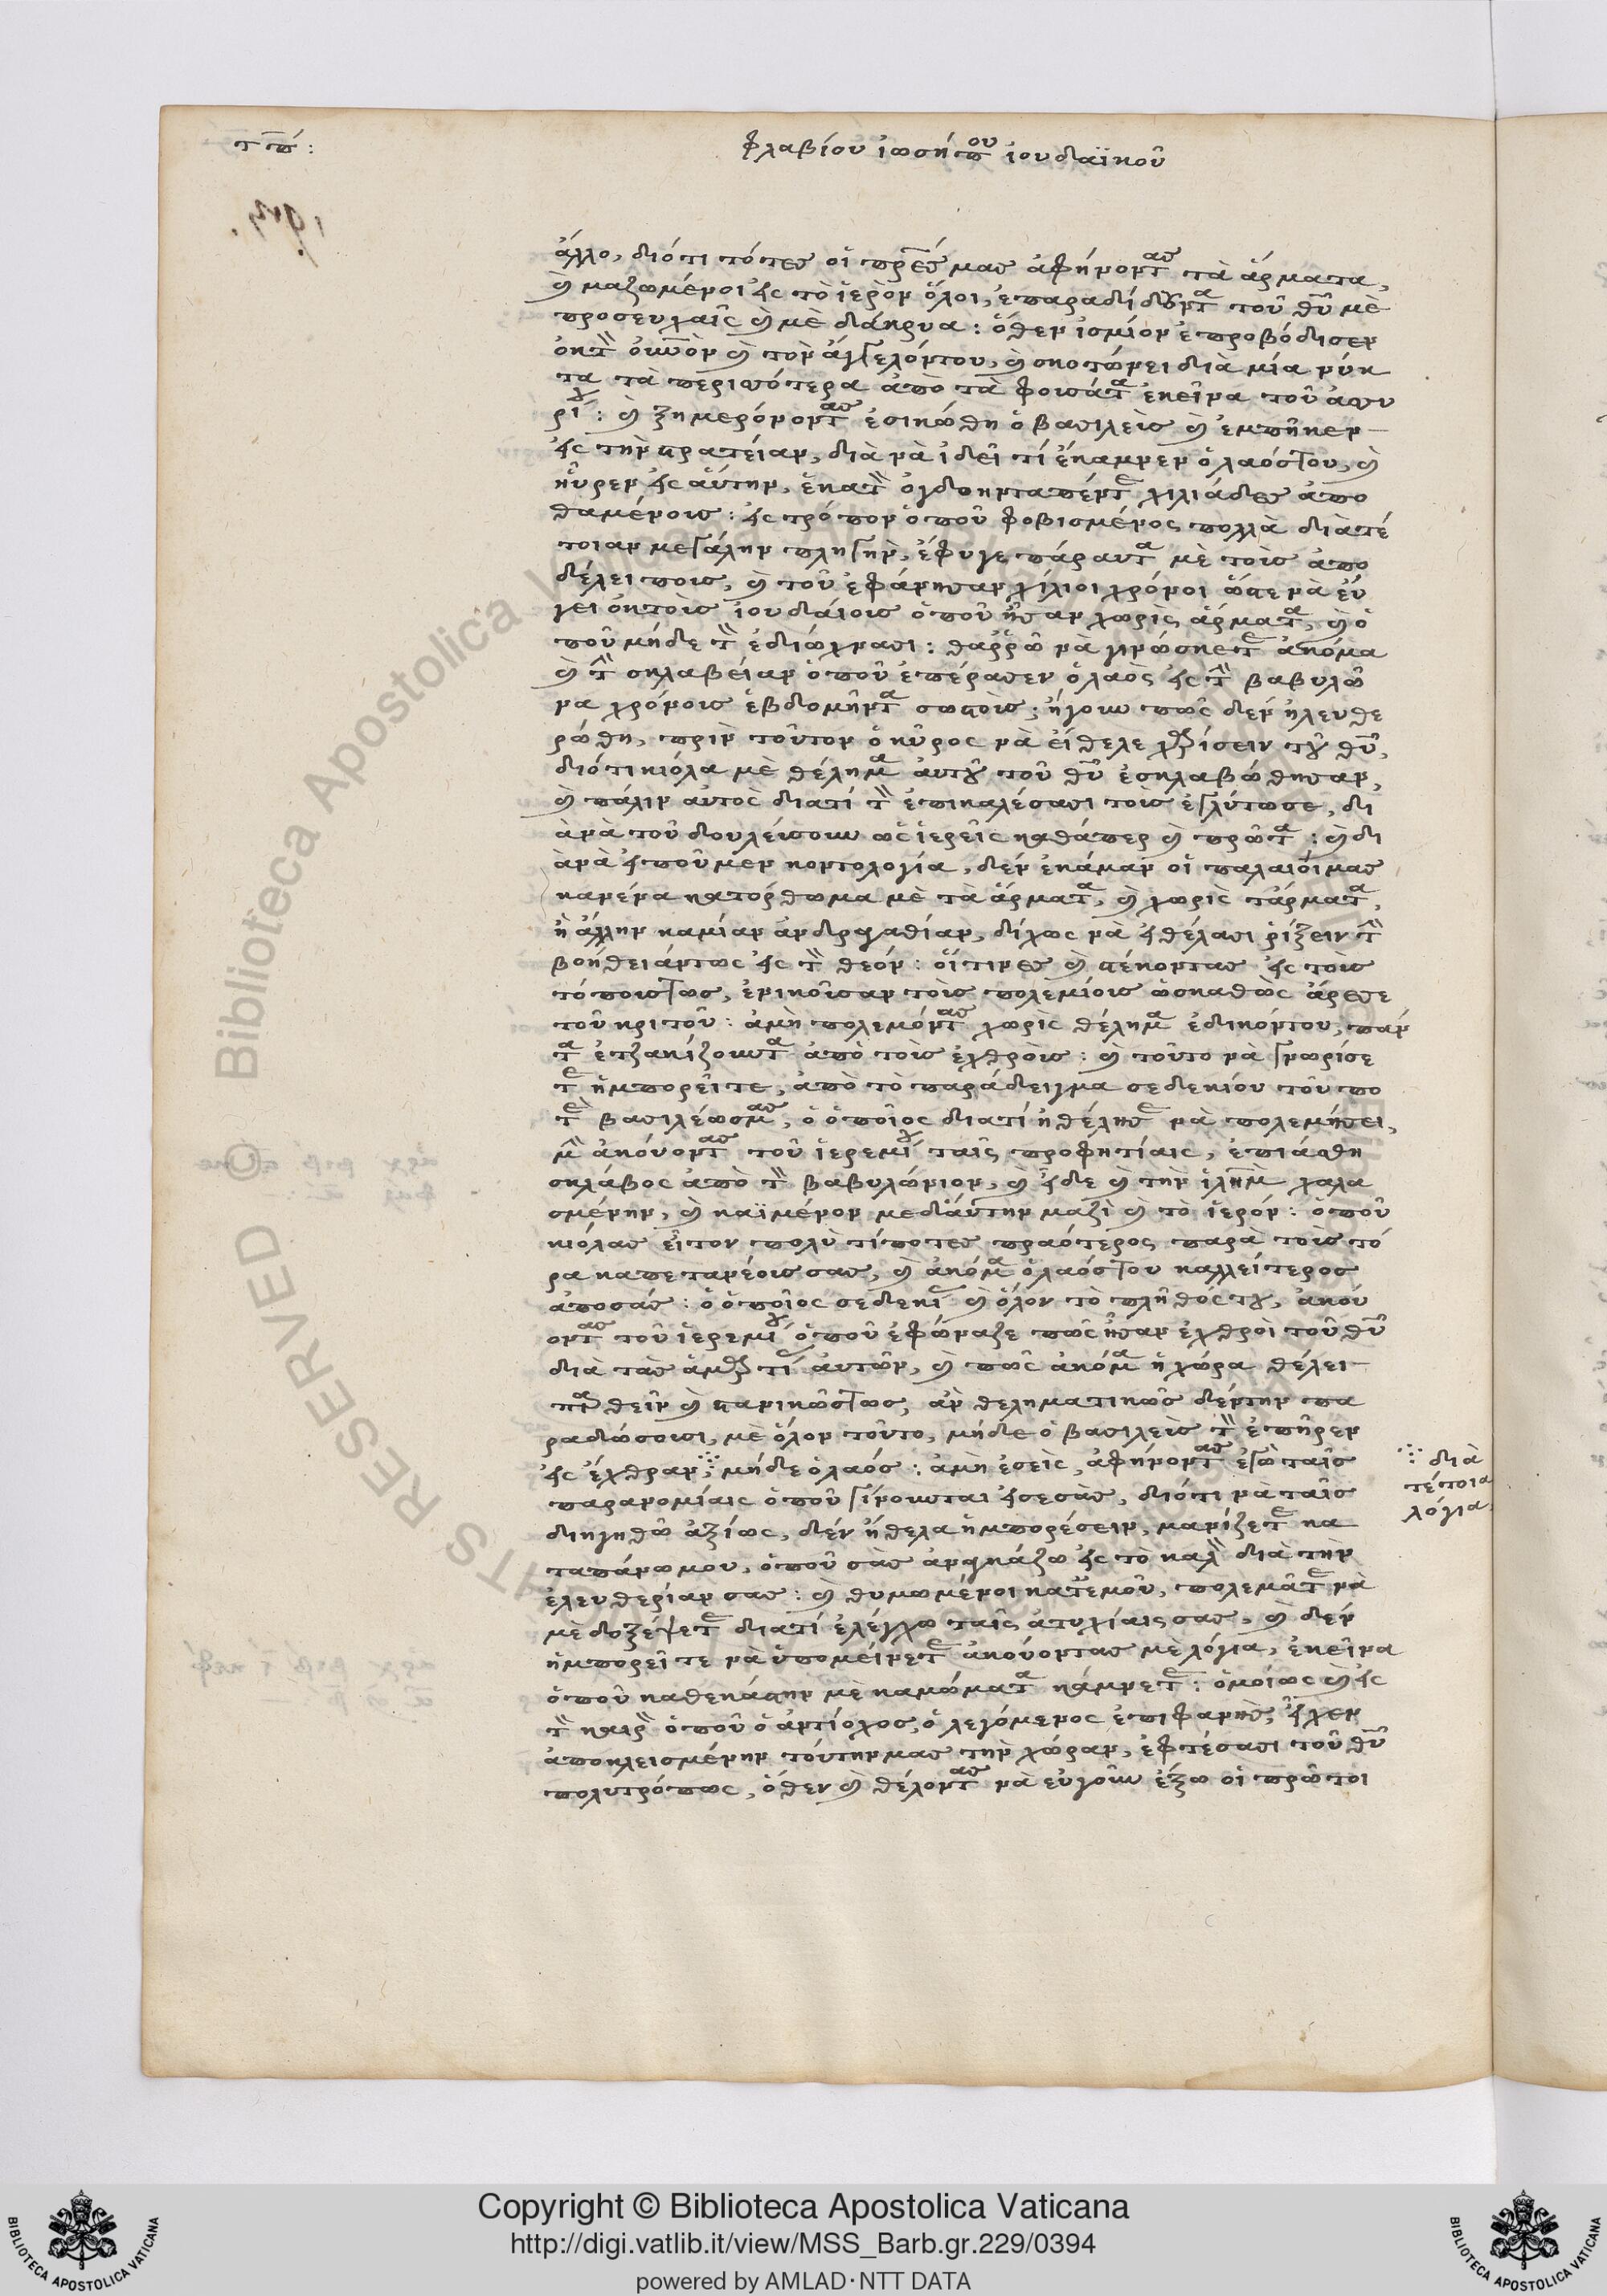 τπ:
φλαβίου ἰωσήπου ἰουδαϊκοῦ
ἄλλο, διότι τότες οἱ πρ̅ες μας ἀφήνοντας τὰ ἄρματα,
καὶ μαζωμένοι εἰς τὸ ἱερὸν ὅλοι, ἐπαραδίδουντα τοῦ θῡ μὲ
προσευχαῖς καὶ μὲ δάκρυα: ὅθεν ἰσμίον ἐπροβόδισεν
τὸν ἄγγελόντου, καὶ σκοτώνει διὰ μία νύκ
τα τὰ περισσότερα ἀπὸ τὰ φουσάτα ἐκεῖνα τοῦ ἀσυ
ρί: καὶ ξημερόνοντας ἐσικώθη ὁ βασιλεὺς καὶ ἐμπῆκεν
εἰς τὴν στρατείαν, διὰ νὰ ἰδεῖ τί ἔκαμνεν ὁ λαόςτου, καὶ
ηὗρεν εἰς αὔτην, ἑκατὸν ὀγδοηνταπέντε χιλιάδες ἀπο
θαμένους: εἰς τρόπον ὁποῦ φοβισμένος πολλὰ διὰ τέ
τοιαν μεγάλην πληγὴν, ἔφυγε πάραυτα μὲ τοὺς ἀπο
δέλειπους, καὶ τοῦ ἐφάνησαν χίλιοι χρόνοι ὥστε νὰ εὔ
γει ἐκ τοὺς ἰουδαίους ὁποῦ ἦσαν χωρὶς ἄρματα, καὶ ὁ
ποῦ μήδε τὸν ἐδιώχνασι: θαῤῥῶ νὰ γινώσκετε ἀκόμα
καὶ τὴν σκλαβείαν ὁποῦ ἐπέρασεν ὁ λαὸς εἰς τὴν βαβυλῶ
να χρόνους ἑβδομῆντα σωστοὺς; ἤγουν πῶς δὲν ἠλευθε
ρώθη, πρὶν τοῦτον ὁ κῦρος νὰ εἴθελε χαρίσειν τοῦ θῡ,
διότι κιόλα μὲ θέλημα αὐτοῦ τοῦ θῡ ἐσκλαβώθησαν,
καὶ πάλιν αὐτὸς διατί τὸν ἐπικαλέσασι τοὺς ἐγλύτωσε, δι
ὰ νὰ τοῦ δουλεύσουν ὡς ἱερεῖς καθάπερ καὶ πρῶτα: καὶ δι
ὰ νὰ εἰποῦμεν κοντολογία, δὲν ἐκάμαν οἱ παλαιοίμας
κανένα κατόρθωμα μὲ τὰ ἄρματα, καὶ χωρὶς τἄρματα,
ἢ ἄλλην καμίαν ἀνδραγαθίαν, δίχως νὰ εἰθέλασι ῥίξειν τὴν
βοήθειάντως εἰς τὸν θεόν: οἵτινες καὶ στέκοντας εἰς τοὺς
τόπουςτως, ἐνικοῦσαν τοὺς πολεμίους ὡσκαθὼς ἄρεσε
τοῦ κριτοῦ: ἀμὴ πολεμόντας χωρὶς θέλημα ἐδικόντου, πάν
τα ἐτζακίζουντα ἀπὸ τοὺς ἐχθρούς: καὶ τοῦτο νὰ γνωρίσε
τε ἠμπορεῖτε, ἀπὸ τὸ παράδειγμα σεδεκίου τοῦ πο
τὲ βασιλέωςμας, ὁ ὁποῖος διατί ἠθέλησε νὰ πολεμήσει,
μὴν ἀκούοντας τοῦ ἱερεμίου ταῖς προφητίαις, ἐπιάσθη
σκλάβος ἀπὸ τὸν βαβυλώνιον, καὶ εἶδε καὶ τὴν ἱλὴμ χαλα
σμένην, καὶ καϊμένον μεδαύτην μαζὶ καὶ τὸ ἱερόν: ὁποῦ
κιόλας εἶτον πολὺ τίποτες πραότερος παρὰ τοὺς τό
ρα καπετανέους σας, καὶ ἀκόμα ὁ λαόςτου καλλείτερος
ἀποσάς: ὁ ὁποῖος σεδεκί καὶ ὅλον τὸ πλῆθόςτου, ἀκού
οντας τοῦ ἱερεμίου ὁποῦ ἐφώναζε πῶς ἦσαν ἐχθροὶ τοῦ θῡ
διὰ τὰς ἁμαρτίας αὐτῶν, καὶ πῶς ἀκόμα ἡ χώρα θέλει
παρθεῖν καὶ στανικῶςτως, ἂν θεληματικῶς δέντην πα
ραδώσουσι, μὲ ὅλον τοῦτο, μήδε ὁ βασιλεὺς τὸν ἐπῆρεν
εἰς ἔχθραν ჻ μήδε ὁ λαός: ἀμὴ ἐσεῖς, ἀφήνοντας ἐγὼ ταῖς
παρανομίαις ὁποῦ γίνουνται εἰσεσὰς, διότι νὰ ταῖς
διηγηθῶ ἀξίως, δὲν ἤθελα ἠμπορέσειν, μανίζετε κα
ταπάνωμου, ὁποῦ σὰς ἀναγκάζω εἰς τὸ καλὸν διὰ τὴν
ἐλευθερίαν σας: καὶ θυμωμένοι κατεμοῦ, πολεμᾶτε νὰ
μὲ δοξέψετε διατί ἐλέγχω ταῖς ἀτυχίαις σας, καὶ δὲν
ἠμπορεῖτε νὰ ὑπομείνετε ἀκούοντας μὲ λόγια, ἐκεῖνα
ὁποῦ καθεκάστην μὲ καμώματα κάμνετε: ὁμοίως καὶ εἰς
τὸν καιρὸν ὁποῦ ὁ ἀντίοχος, ὁ λεγόμενος ἐπιφανὴς, εἶχεν
ἀποκλεισμένην τούτηνμας τὴν χώραν, ἐφτέσασι τοῦ θῡ
πολυτρόπως, ὅθεν καὶ θέλοντας νὰ εὐγοῦν ἔξω οἱ πρῶτοι
჻ διὰ
τέτοια
λόγια
Copyright © Biblioteca Apostolica Vaticana
http://digi.vatlib.it/view/MSS_Barb.gr.229/0394
powered by AMLAD·NTT DATA
BIBLIOTECA APOSTOLICA VATICANA
BIBLIOTECA APOSTOLICA VATICANA